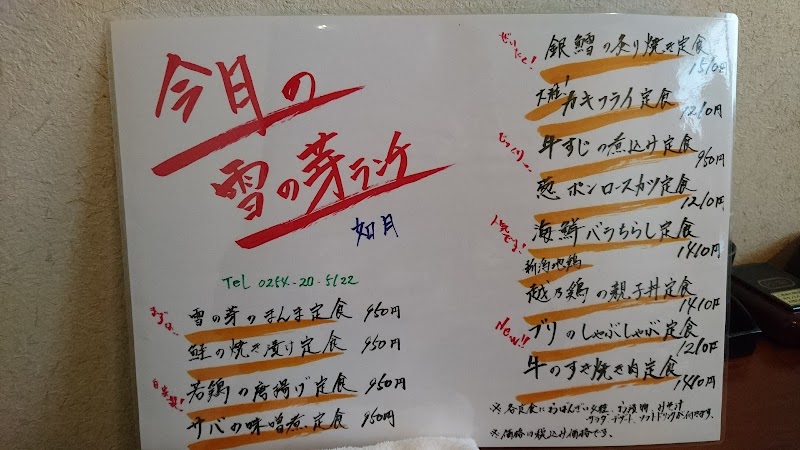 今月の
雪の芽ランチ
如月
Tel 0254-20-5122
まずは、
雪の芽のまんま定食 950円
鮭の焼き漬け定食 950円
自家製!
若鶏の唐揚げ定食 950円
サバの味噌煮定食 950円
ぜいたく!
銀鱈の炙り焼き定食
1510円
大粒!
カキフライ定食
1210円
じっくり〜
牛すじの煮込み定食
950円
葱ポンロースカツ定食
1210円
人気です!
海鮮バラちらし定食
1410円
新潟地鶏
越乃鶏の親子丼定食
1410円
New!!
ブリのしゃぶしゃぶ定食
1210円
牛のすき焼き肉定食
1410円
※各定食におばんざい2種、お漬物、みそ汁
サラダ、デザート、ソフトドリンクが付きます。
※価格は税込み価格です。